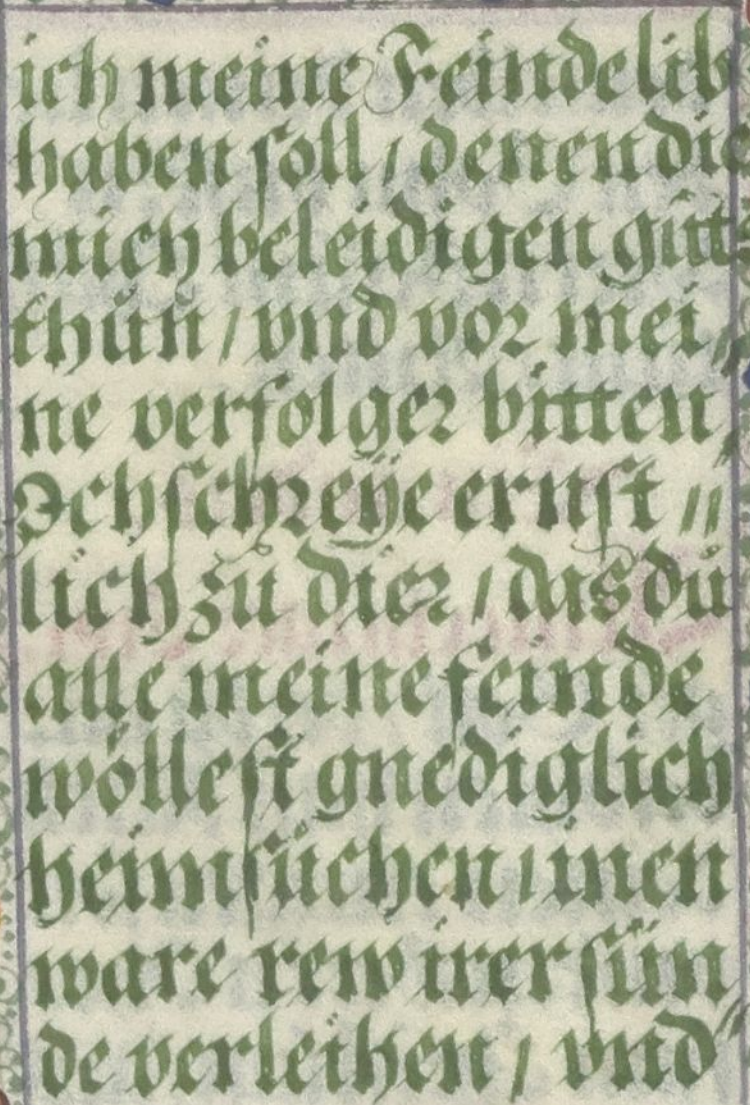 ich meine Feinde lib
haben soll / denen die
mich beleidigen gůtt
thůn / vnd vor mei„
ne verfolger bitten„
Ich schreÿe ernst „
lich zů dier / das dů
alle meine feinde
wöllest gnediglich
heimsůchen / inen
ware rew irer sün„
de verleihen / vnd